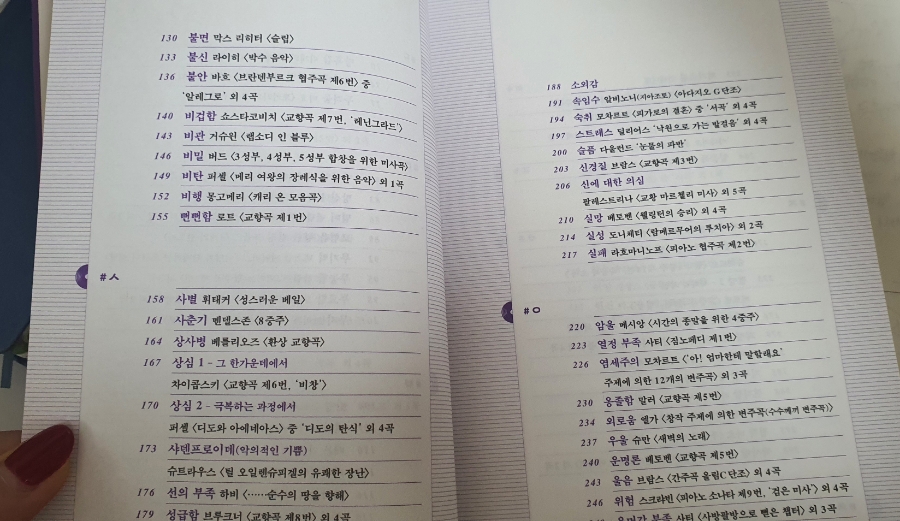 130 불면 막스 리히터 〈슬립〉
133 불신 라이히 〈박수 음악〉
136 불안 바흐 〈브란덴부르크 협주곡 제6번〉 중
'알레그로' 외 4곡
140 비겁함 쇼스타코비치 〈교향곡 제7번, '레닌그라드'〉
143 비관 거슈윈 〈랩소디 인 블루〉
146 비밀 버드 〈3성부, 4성부, 5성부 합창을 위한 미사곡〉
149 비탄 퍼셀 〈메리 여왕의 장례식을 위한 음악〉 외 1곡
152 비행 몽고메리 〈캐리 온 모음곡〉
155 뻔뻔함 로트 〈교향곡 제1번〉
#ㅅ
158 사별 휘태커 〈성스러운 베일〉
161 사춘기 멘델스존 〈8중주〉
164 상사병 베를리오즈 〈환상 교향곡〉
167 상심 1 – 그 한가운데에서
차이콥스키 〈교향곡 제6번, '비창'〉
170 상심 2 – 극복하는 과정에서
퍼셀 〈디도와 아에네아스〉 중 '디도의 탄식' 외 4곡
173 샤덴프로이데(악의적인 기쁨)
슈트라우스 〈틸 오일렌슈피겔의 유쾌한 장난〉
176 선의 부족 하비 〈……순수의 땅을 향해〉
179 성급함 브루크너 〈교향곡 제8번〉 외 4곡
188 소외감
191 속임수 알비노니(지아조토) 〈아다지오 G단조〉
194 숙취 모차르트 〈피가로의 결혼〉 중 '서곡' 외 4곡
197 스트레스 딜리어스 '낙원으로 가는 발걸음' 외 4곡
200 슬픔 다울런드 '눈물의 파반'
203 신경질 브람스 〈교향곡 제3번〉
206 신에 대한 의심
팔레스트리나 〈교황 마르첼리 미사〉 외 5곡
210 실망 베토벤 〈웰링턴의 승리〉 외 4곡
214 실성 도니체티 〈람메르무어의 루치아〉 외 2곡
217 실패 라흐마니노프 〈피아노 협주곡 제2번〉
#ㅇ
220 암울 메시앙 〈시간의 종말을 위한 4중주〉
223 열정 부족 사티 〈짐노페디 제1번〉
226 염세주의 모차르트 〈'아! 엄마한테 말할래요'
주제에 의한 12개의 변주곡〉 외 3곡
230 옹졸함 말러 〈교향곡 제5번〉
234 외로움 엘가 〈창작 주제에 의한 변주곡(수수께끼 변주곡)〉
237 우울 슈만 〈새벽의 노래〉
240 운명론 베토벤 〈교향곡 제5번〉
243 울음 브람스 〈간주곡 올림C단조〉 외 4곡
246 위험 스크랴빈 〈피아노 소나타 제9번, '검은 미사'〉 외 4곡
부족 사티 〈사방팔방으로 뻗은 챕터〉 외 3곡